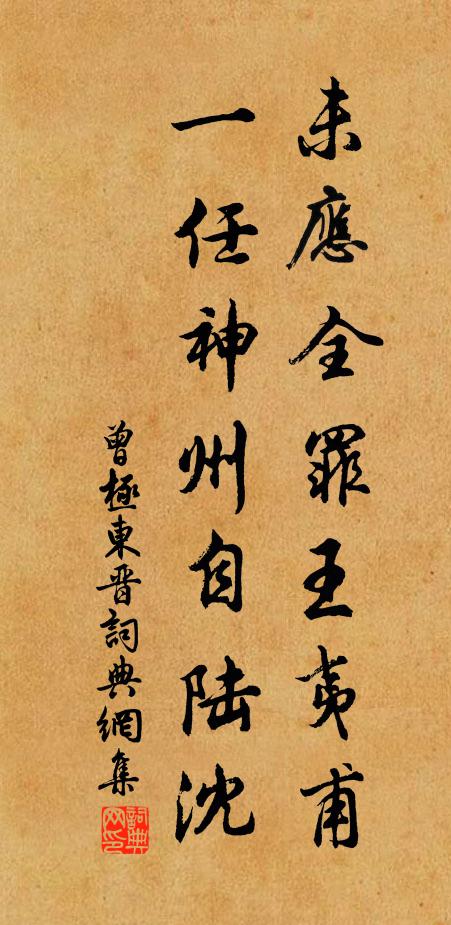 未應全罪王夷甫
一任神州自陸沈
曾極東晋詞典網集
詞典网印